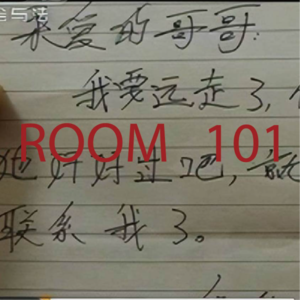 亲爱的哥哥:
我要远走了,
ROOM 101
好好过吧,就
联系我了。